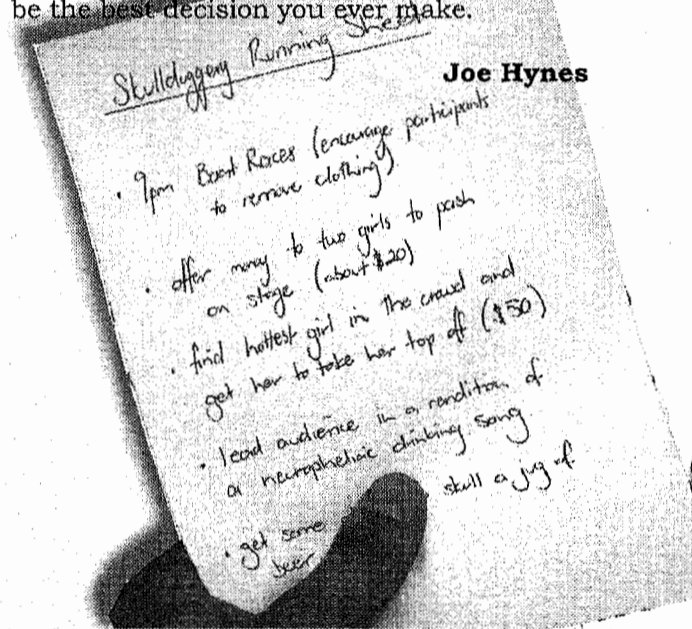 be the best decision you ever make.
Joe Hynes
Skullduggery Running Sheet
• 9pm Boat Races (encourage participants
to remove clothing)
• offer money to two girls to pash
on stage (about $20)
• find hottest girl in the crowd and
get her to take her top off ($50)
• lead audience in a rendition of
a necrophelic drinking song
• get some skull a jug of
beer